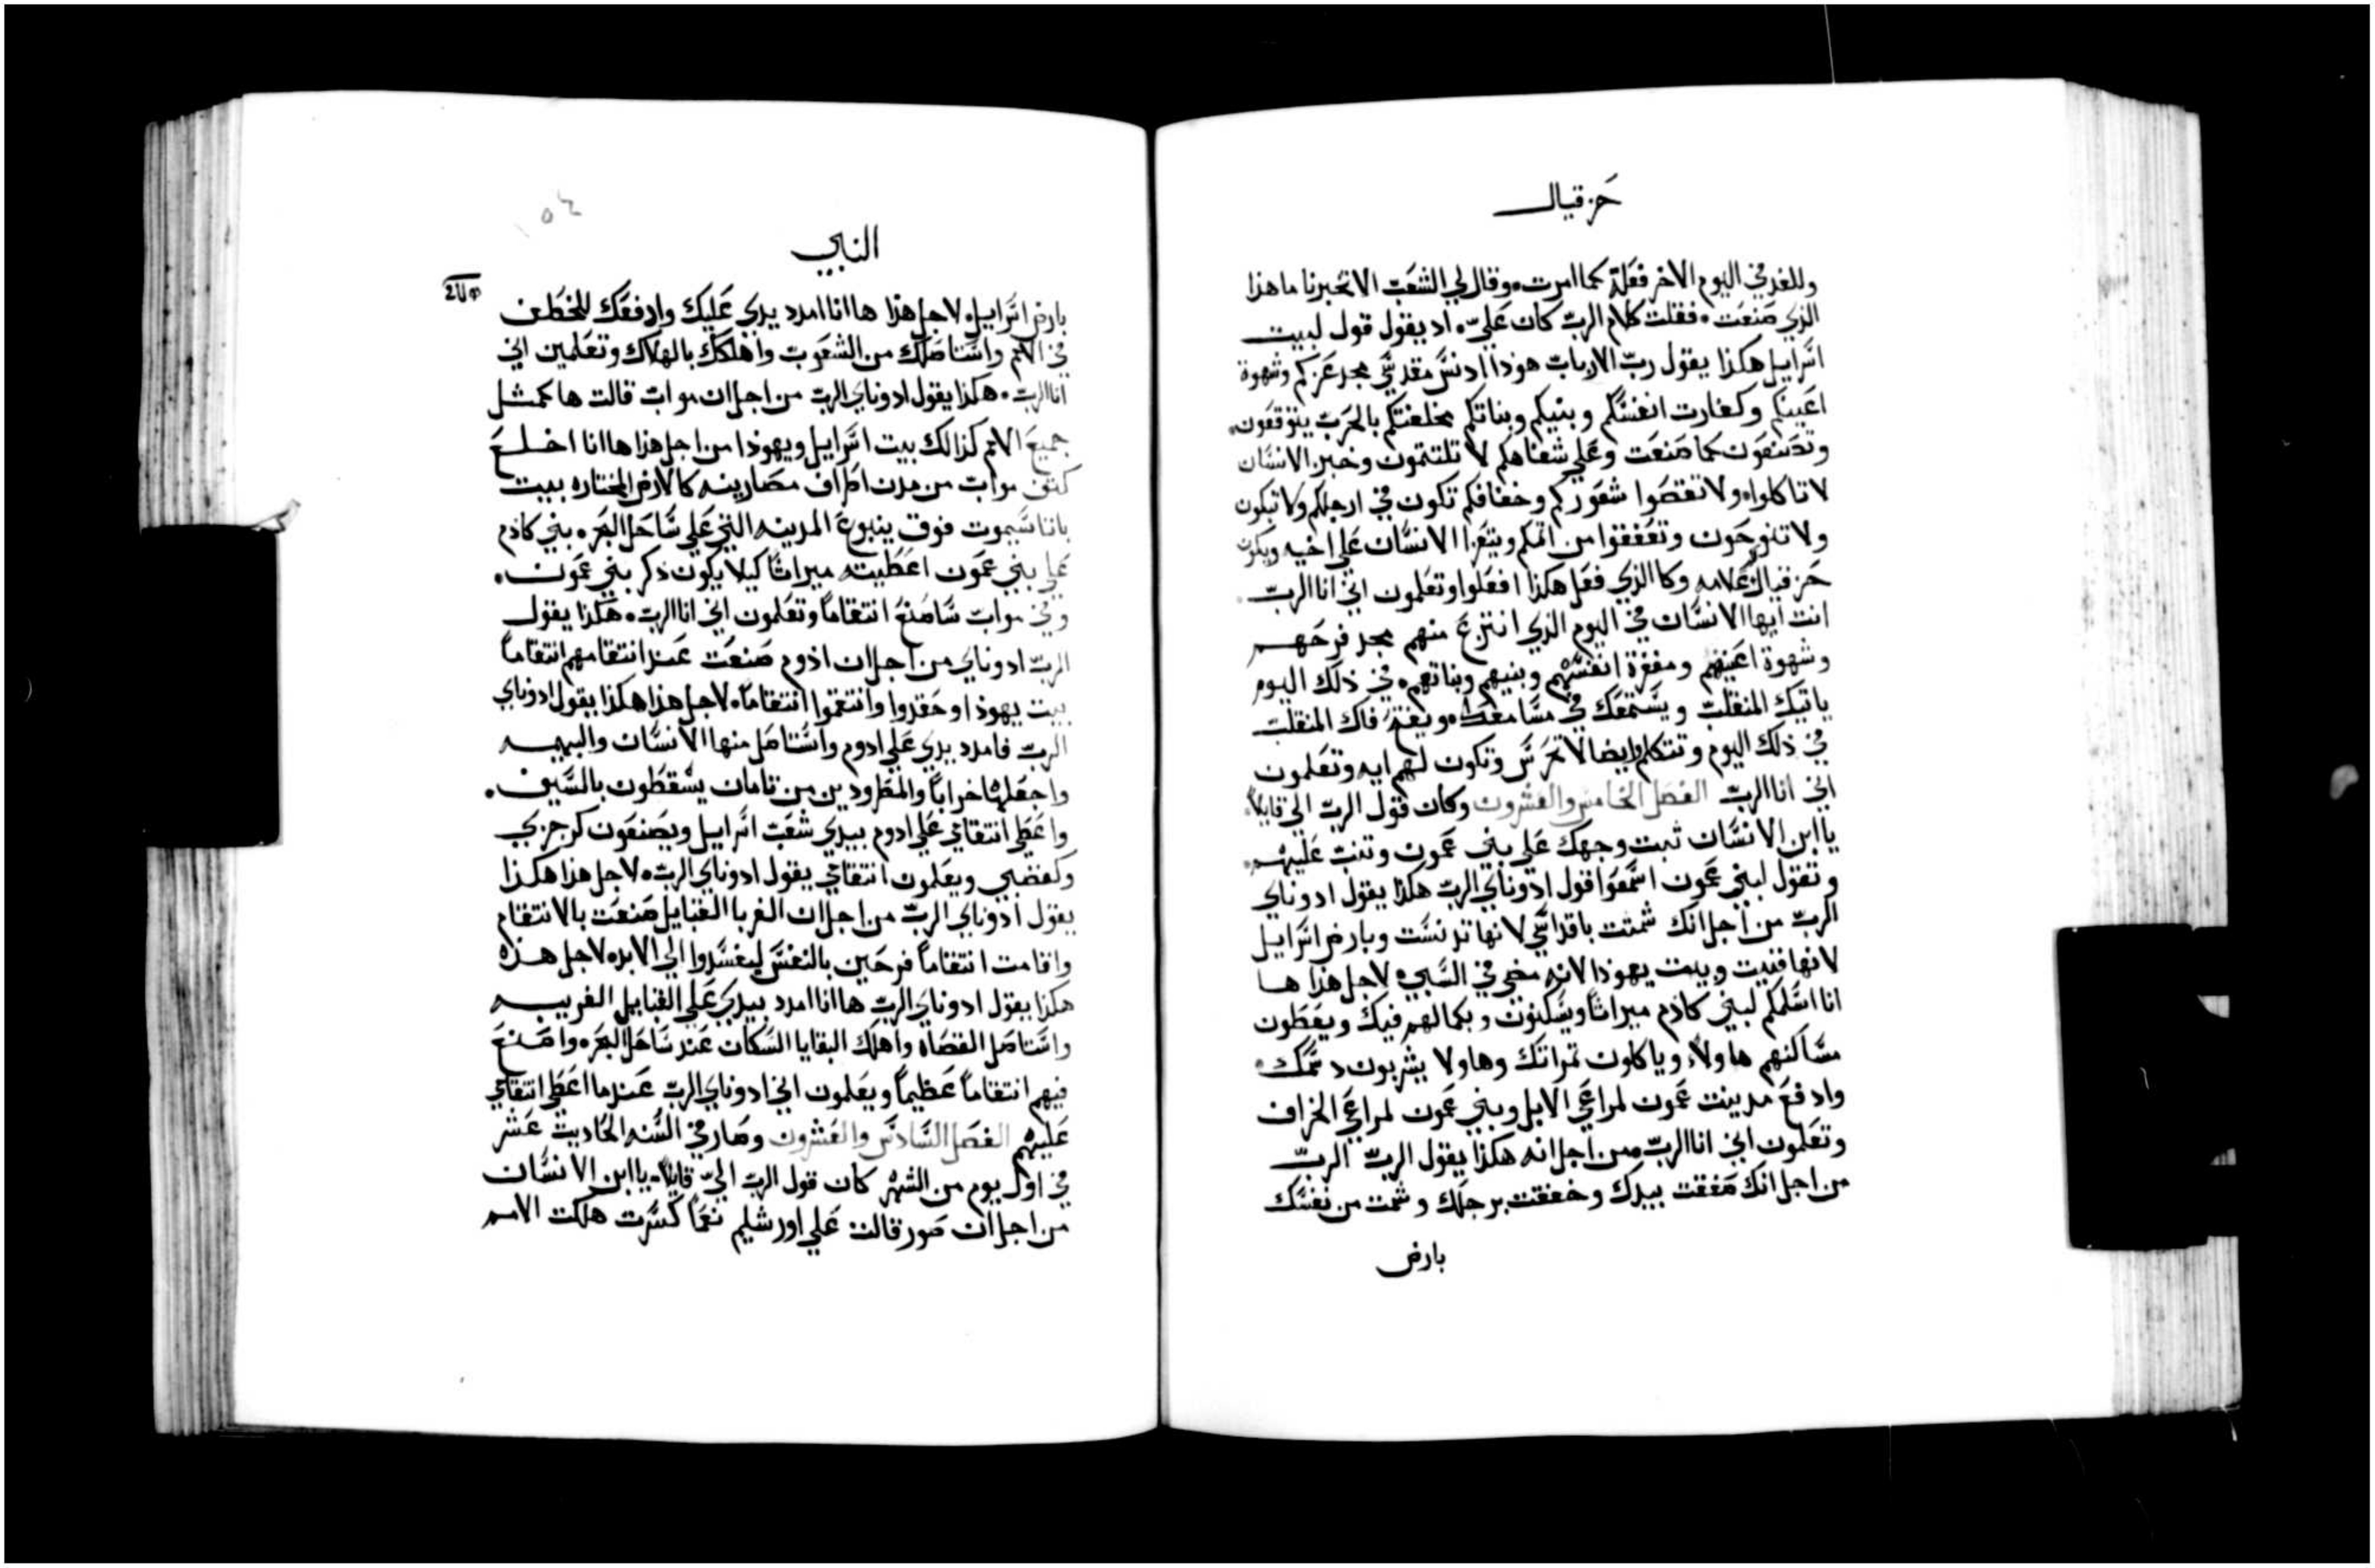 حزقيال
وللغد في اليوم الاخر فعلة كما امرت. وقال لي الشعب الا تخبرنا ما هذا
الذي صنعت. فقلت كلام الرب كان علي. اد يقول قول لبيت
اسراييل هكذا يقول رب الارباب هوذا ادنس مقدسي مجد عزكم وشهوة
اعينكم وكفارت انفسكم وبنيكم وبناتكم مخلفتكم بالحرب يتوقعون.
وتصنعون كما صنعت وعلي شفاهكم لا تلتتمون وخبز الانسان
لا تاكلوا. ولا تقصوا شعوركم وخفافكم تكون في ارجلكم ولا تبكون
ولا تنوحون وتعففوا من اتمكم ويتعزا الانسان علي اخيه ويكون
حزقيال علامه وكالذي فعل هكذا افعلوا وتعلمون اني انا الرب.
انت ايها الانسان في اليوم الذي انتزع منهم مجد فرحهم
وشهوة اعينهم ومفغرة انفسهم وبنيهم وبناتهم. في ذلك اليوم
ياتيك المنفلت ويستمعك في مسامعك. ويفتح فاك المنفلت
في ذلك اليوم وتتكلم وايضا لا تخرس وتكون لهم ايه وتعلمون
اني انا الرب الفصل الخامس والعشرون وكان قول الرب الي قايلا.
يا ابن الانسان تبت وجهك علي بني عمون وتنبت عليهم.
وتقول لبني عمون اسمعوا قول ادوناي الرب هكذا يقول ادوناي
الرب من اجل انك شمتت باقداسي لانها تدنست وبارض اسراييل
لانها فنيت وبيت يهوذا لانه مضي في السبي. لاجل هذا ها
انا اسلمكم لبني كادم ميراثا ويسكنون وبكمالهم فيك ويعطون
مساكنهم هاولاء وياكلون تمراتك وهاولا يشربون دسمك.
وادفع مدينت عمون لمراعي الابل وبني عمون لمراعي الخراف
وتعلمون اني انا الرب. من اجل انه هكذا يقول الرب الرب
من اجل انك صفقت بيدك وخفقت برجلك وشمت من نفسك
بارض
النبي
بارض اسراييل. لاجل هذا ها انا امدد يدي عليك وادفعك للخطف
في الامم واستاصلك من الشعوب واهلكك بالهلاك وتعلمين اني
انا الرب. هكذا يقول ادوناي الرب من اجل ان مواب قالت ها كمثل
جميع الامم كذالك بيت اسراييل ويهوذا من اجل هذا ها انا اخلع
كتف مواب من مدن اطراف مصارينه كالارض المختاره بيت
باناسيموت فوق ينبوع المدينه التي علي ساحل البحر. بني كادم
علي بني عمون اعطيته ميراثا كيلا يكون ذكر بني عمون.
وفي مواب ساصنع انتقاما وتعلمون اني انا الرب. هكذا يقول
الرب ادوناي من اجل ان ادوم صنعت عند انتقامهم انتقاما
بيت يهوذا وحقدوا وانتقموا انتقاما. لاجل هذا هكذا يقول ادوناي
الرب فامدد يدي علي ادوم واستاصل منها الانسان والبهيمه
واجعلها خرابا والمطرودين من تامان يسقطون بالسيف.
واعطي انتقامي علي ادوم بيدي شعب اسراييل ويصنعون كرجزي
وكغضبي ويعلمون انتقامي يقول ادوناي الرب. لاجل هذا هكذا
يقول ادوناي الرب من اجل ان الغربا القبايل صنعت بالانتقام
واقامت انتقاما فرحين بالنفس ليفسدوا الي الابد. لاجل هذه
هكذا يقول ادوناي الرب ها انا امدد بيدي علي القبايل الغريبه
واستاصل القضاه واهلك البقايا السكان عند ساحل البحر. واصنع
فيهم انتقاما عظيما ويعلمون اني ادوناي الرب عندما اعطي انتقامي
عليهم الفصل السادس والعشرون وصار في السنه الحاديت عشر
في اول يوم من الشهر كان قول الرب الي قايلا. يا ابن الانسان
من اجل ان صور قالت علي اورشليم نعما كسرت هلكت الامم